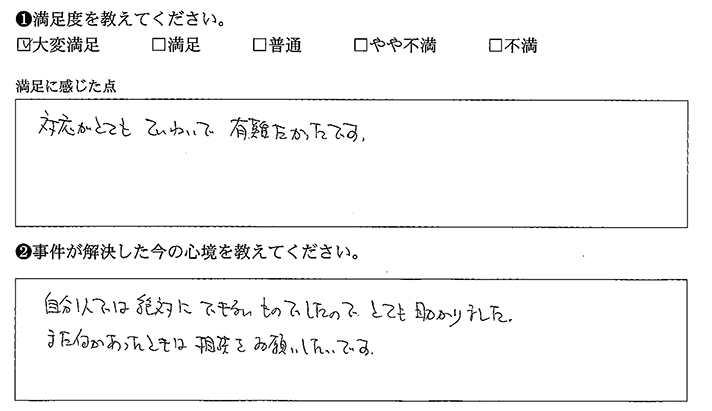 ❶満足度を教えてください。
☑大変満足 □満足 □普通 □やや不満 □不満
満足に感じた点
対応がとても ていねいで 有難たかったです。
❷事件が解決した今の心境を教えてください。
自分1人では絶対に できない ものでしたので とても 助かりました。
また何かあったときは 相談を お願いしたいです。